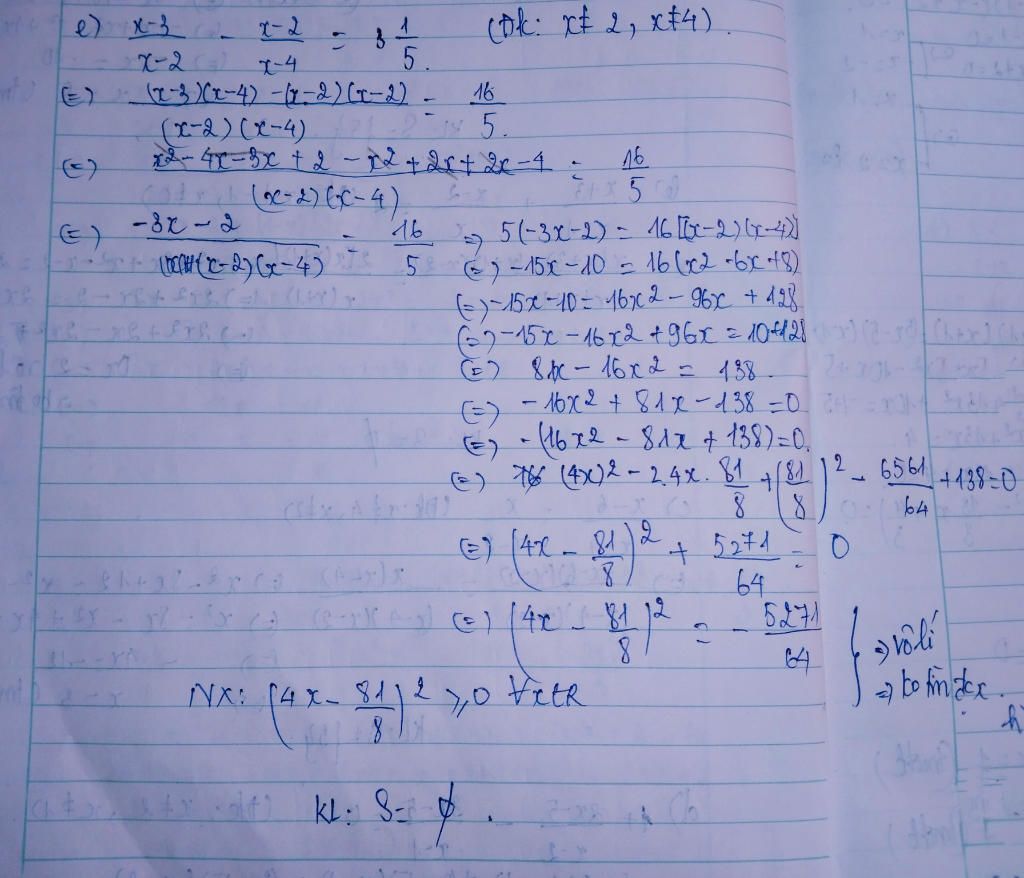 e) \frac{x-3}{x-2} - \frac{x-2}{x-4} = 3\frac{1}{5}. (Đk: x ≠ 2, x ≠ 4).
(=) \frac{(x-3)(x-4) - (x-2)(x-2)}{(x-2)(x-4)} = \frac{16}{5}.
(=) \frac{x2 - 4x - 3x + 2 - x2 + 2x + 2x - 4}{(x-2)(x-4)} = \frac{16}{5}
(=) \frac{-3x - 2}{(x-2)(x-4)} = \frac{16}{5} => 5(-3x-2) = 16[(x-2)(x-4)]
(=) -15x - 10 = 16(x2 - 6x + 8)
(=) -15x - 10 = 16x2 - 96x + 128
(=) -15x - 16x2 + 96x = 10 + 128
(=) 81x - 16x2 = 138.
(=) -16x2 + 81x - 138 = 0
(=) -(16x2 - 81x + 138) = 0.
(=) (4x)² - 2.4x.\frac{81}{8} + (\frac{81}{8})² - \frac{6561}{64} + 138 = 0
(=) (4x - \frac{81}{8})² + \frac{5271}{64} = 0
(=) (4x - \frac{81}{8})² = -\frac{5271}{64}
NX: (4x - \frac{81}{8})² ≥ 0 ∀x∈R
} => vô lí
=> ko tìm đc x.
KL: S = ϕ.